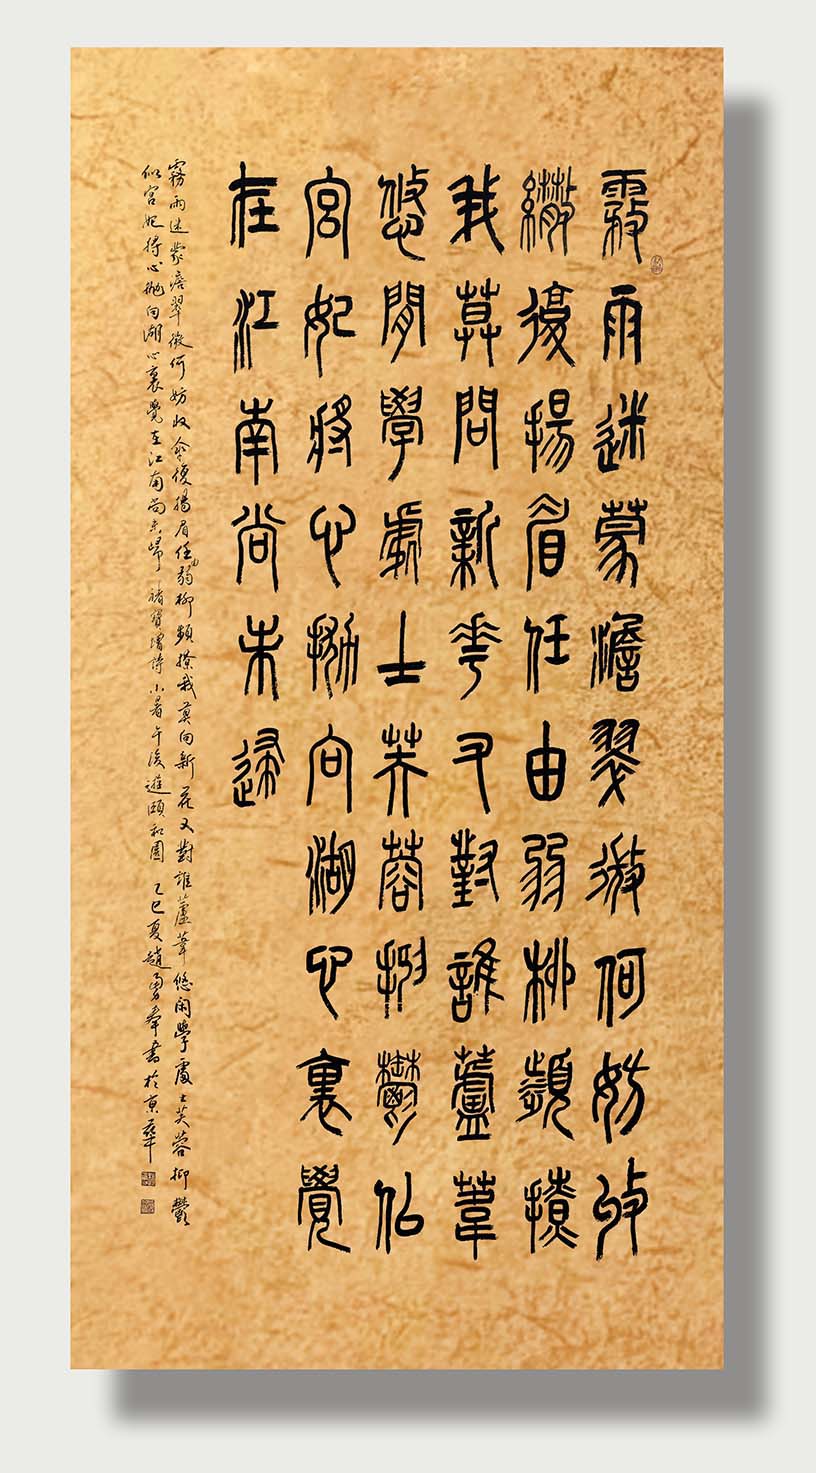 霧雨迷蒙澹翠微何妨收
繖復揚眉任由弱柳頻撩
我莫問新花又對誰蘆葦
悠閒學處士芙蓉抑鬱似
宮妃將心拋向湖心裏覺
在江南尚未歸
霧雨迷蒙澹翠微何妨收傘復揚眉任由弱柳頻撩我莫問新花又對誰蘆葦悠閑學處士芙蓉抑鬱
似宮妃將心拋向湖心裏覺在江南尚未歸 褚寶增詩小暑午後遊頤和園 乙巳夏趙勇奉書於京華